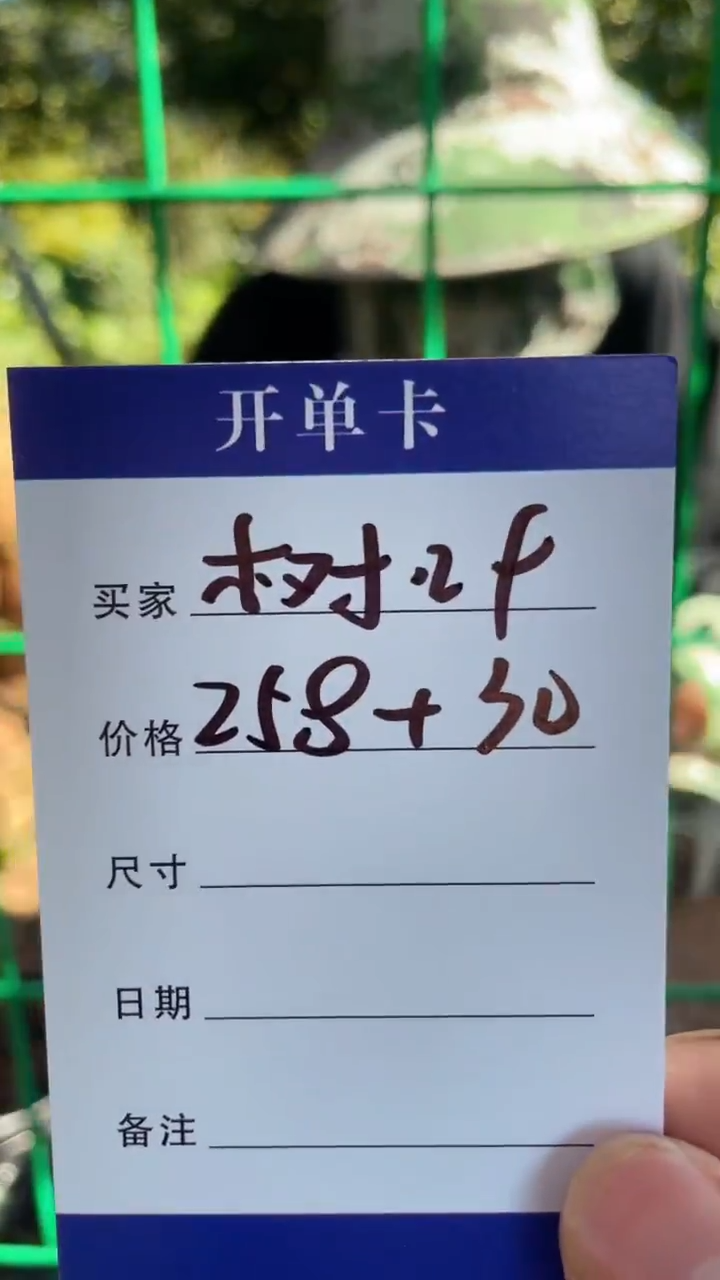 开单卡
买家 树
价格 258+30
尺寸
日期
备注